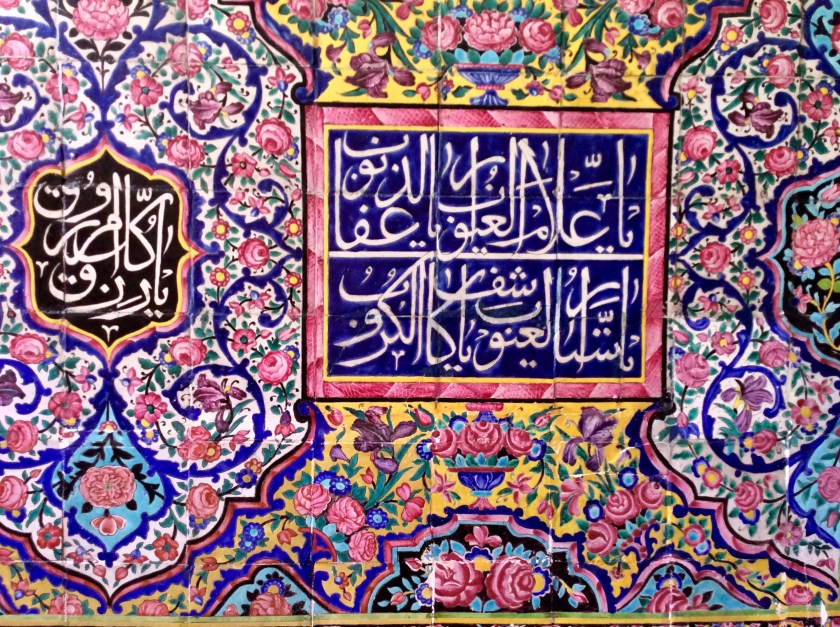 يا علّام الغيوب يا غفار الذنوب
يا ستّار العيوب يا كاشف الكروب
يا رازق كلّ مرزوق